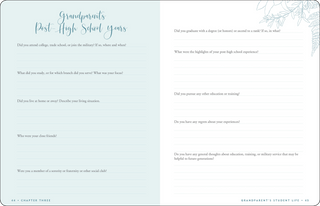 Grandparents
Post-High School Years
Did you attend college, trade school, or join the military? If so, where and when?
What did you study, or for which branch did you serve? What was your focus?
Did you live at home or away? Describe your living situation.
Who were your close friends?
Were you a member of a sorority or fraternity or other social club?
64 • CHAPTER THREE
Did you graduate with a degree (or honors) or ascend in a rank? If so, in what?
What were the highlights of your post-high school experiences?
Did you pursue any other education or training?
Do you have any regrets about your experiences?
Do you have any general thoughts about education, training, or military service that may be
helpful to future generations?
GRANDPARENT'S STUDENT LIFE • 65